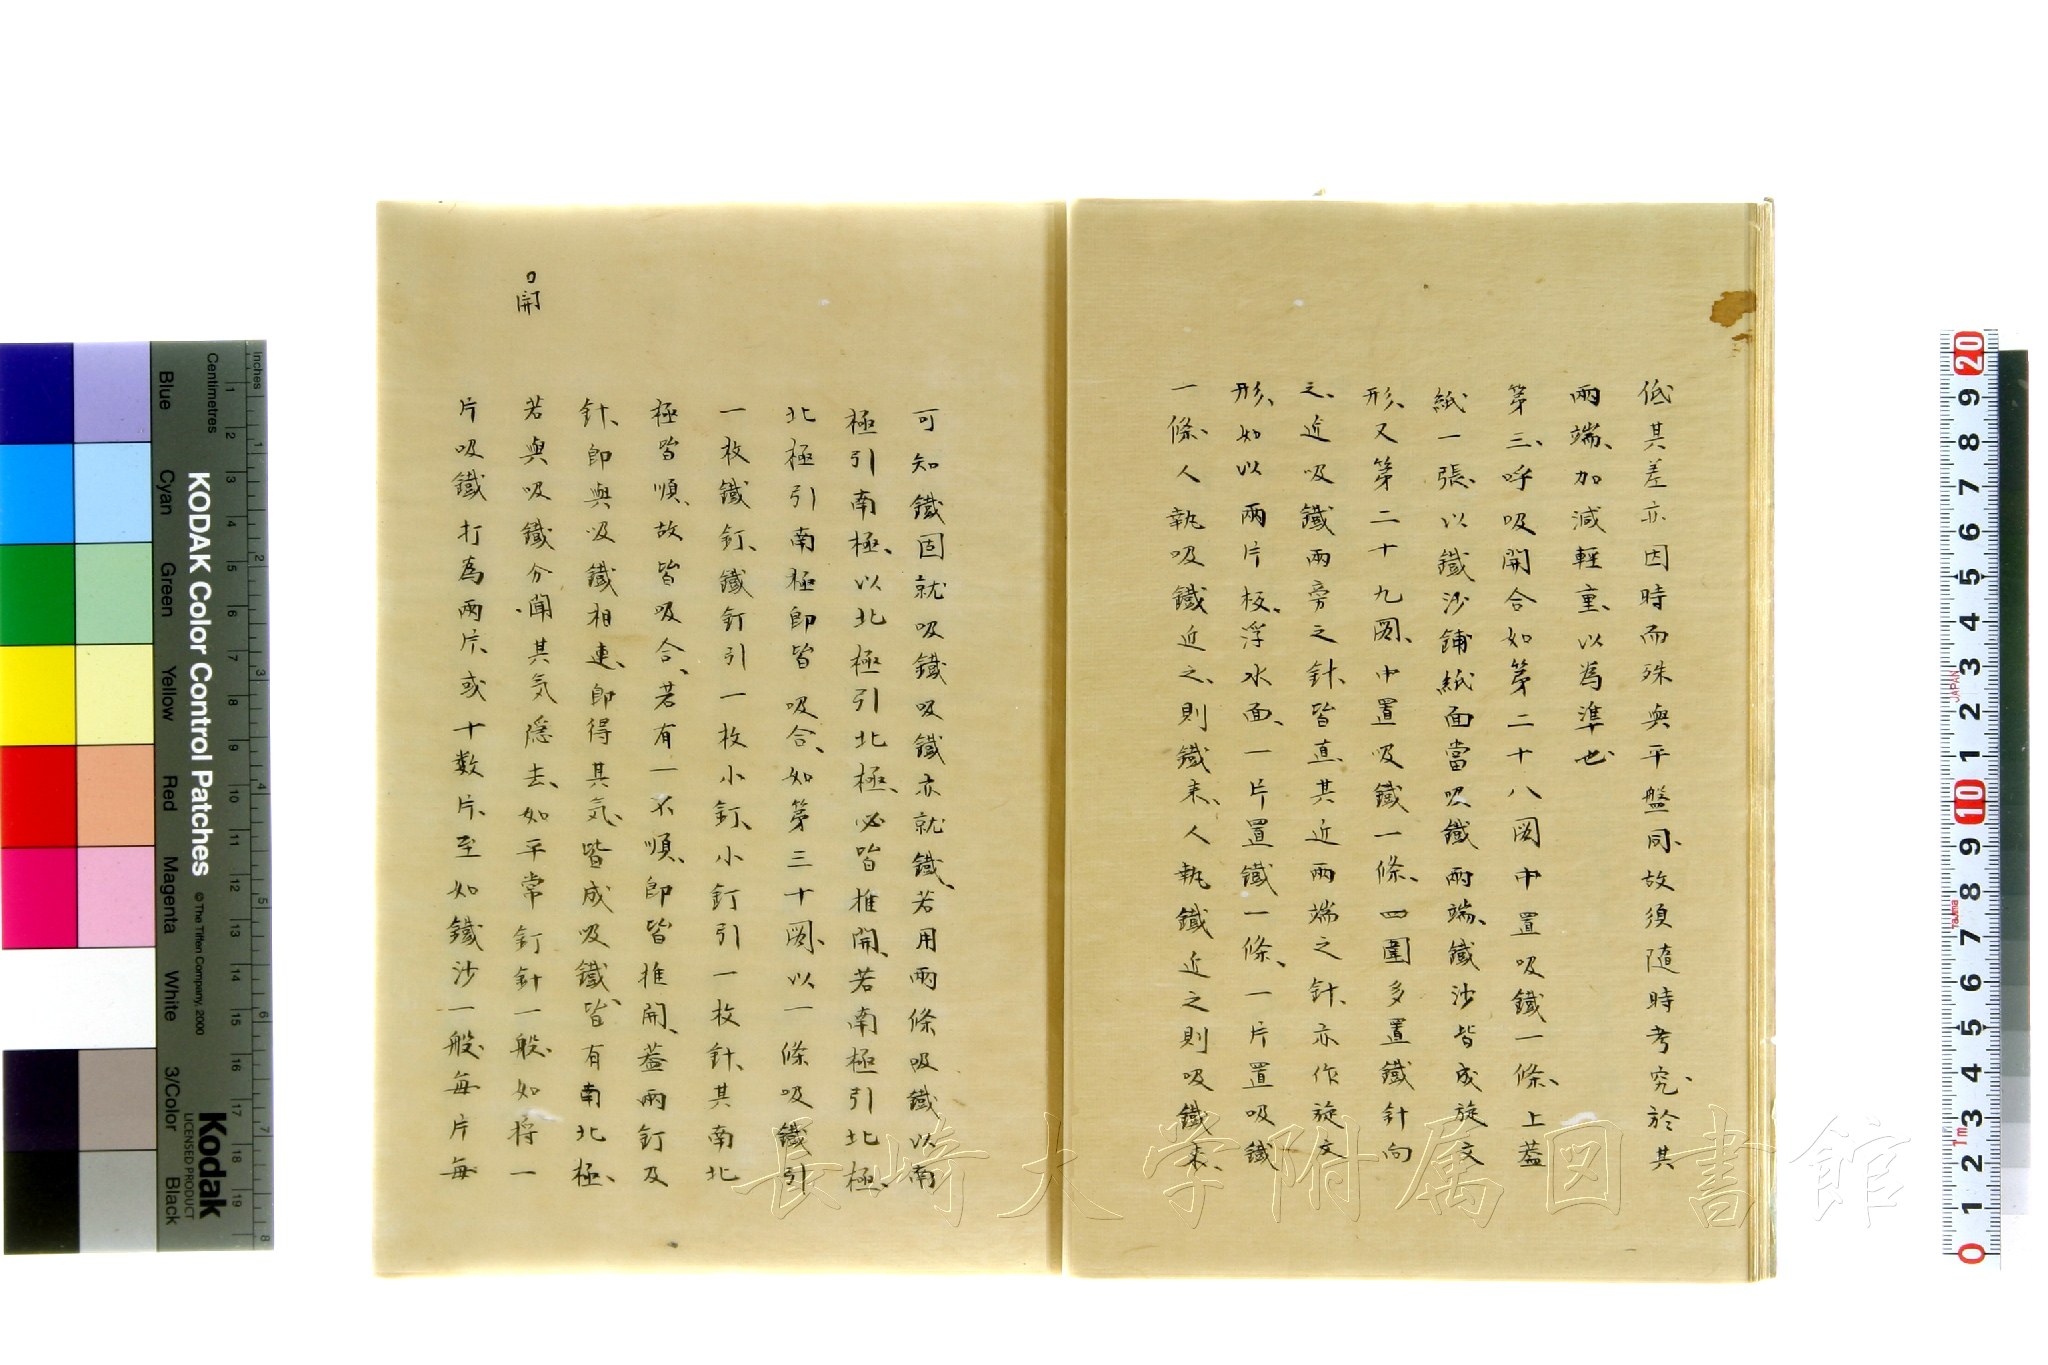 低其差亦因時而殊與平盤同、故須隨時考究、於其
兩端、加減輕重、以為準也
第三、呼吸開合如第二十八図中置吸鐵一條、上蓋
紙一張、以鐵沙鋪紙面當吸鐵兩端、鐵沙皆成旋文
形、又第二十九図、中置吸鐵一條、四圍多置鐵針向
之、近吸鐵兩旁之針、皆直、其近兩端之針、亦作旋文
形、如以兩片板、浮水面、一片置鐵一條、一片置吸鐵
一條、人執吸鐵近之、則鐵来、人執鐵近之則吸鐵来、
可知鐵固就吸鐵吸鐵亦就鐵、若用兩條吸鐵以南
極引南極、以北極引北極、必皆推開、若南極引北極、
北極引南極即皆吸合、如第三十図、以一條吸鐵引
一枚鐵釘、鐵釘引一枚小釘、小釘引一枚針、其南北
極皆順、故皆吸合、若有一不順、即皆推開、蓋兩釘及
針、即與吸鐵相連、即得其気、皆成吸鐵、皆有南北極、
若與吸鐵分、開其気隠去、如平常釘針一般、如将一
片吸鐵打為兩片、或十数片、至如鐵沙一般、每片每
開
長崎大学附属図書館
KODAK Color Control Patches
© The Tiffen Company, 2000
Kodak
LICENSED PRODUCT
Blue
Cyan
Green
Yellow
Red
Magenta
White
3/Color
Black
Inches
Centimetres
1 2 3 4 5 6 7 8 9 10 11 12 13 14 15 16 17 18 19
1 2 3 4 5 6 7 8
20 9 8 7 6 5 4 3 2 1 10 9 8 7 6 5 4 3 2 1 0
JAPAN
Tajima
1m